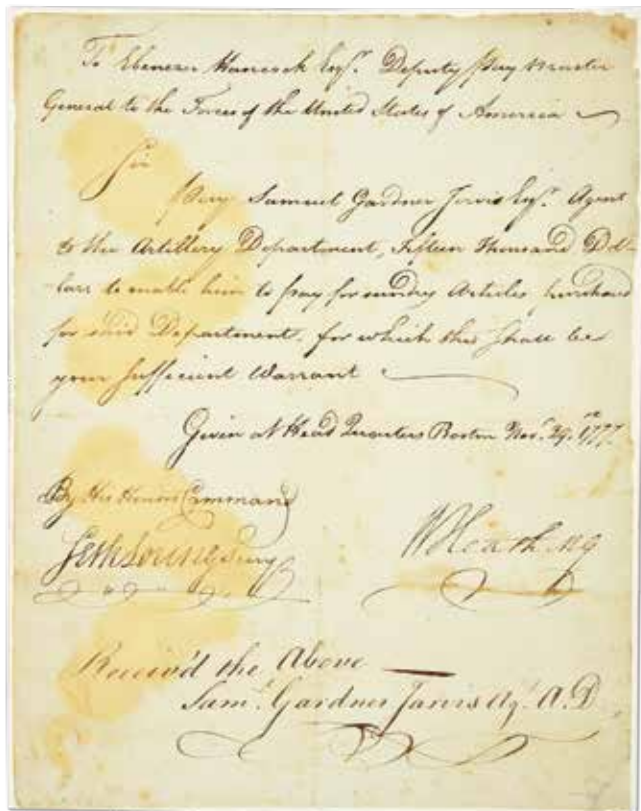 To Ebenezer Hancock Esqr. Deputy Pay Master
General to the Forces of the United States of America
Sir
Pay Samuel Gardner Jarvis Esqr. Agent
to the Artillery Department, Fifteen Thousand Dol-
-lars to enable him to pay for sundry Articles purchased
for said Department, for which this shall be
your sufficient Warrant
Given at Head Quarters Boston Novr. 29th. 1777.
By His Honors Command
Seth Loring Secry
W Heath MG
Receiv'd the Above
Saml. Gardner Jarvis Agt. A.D